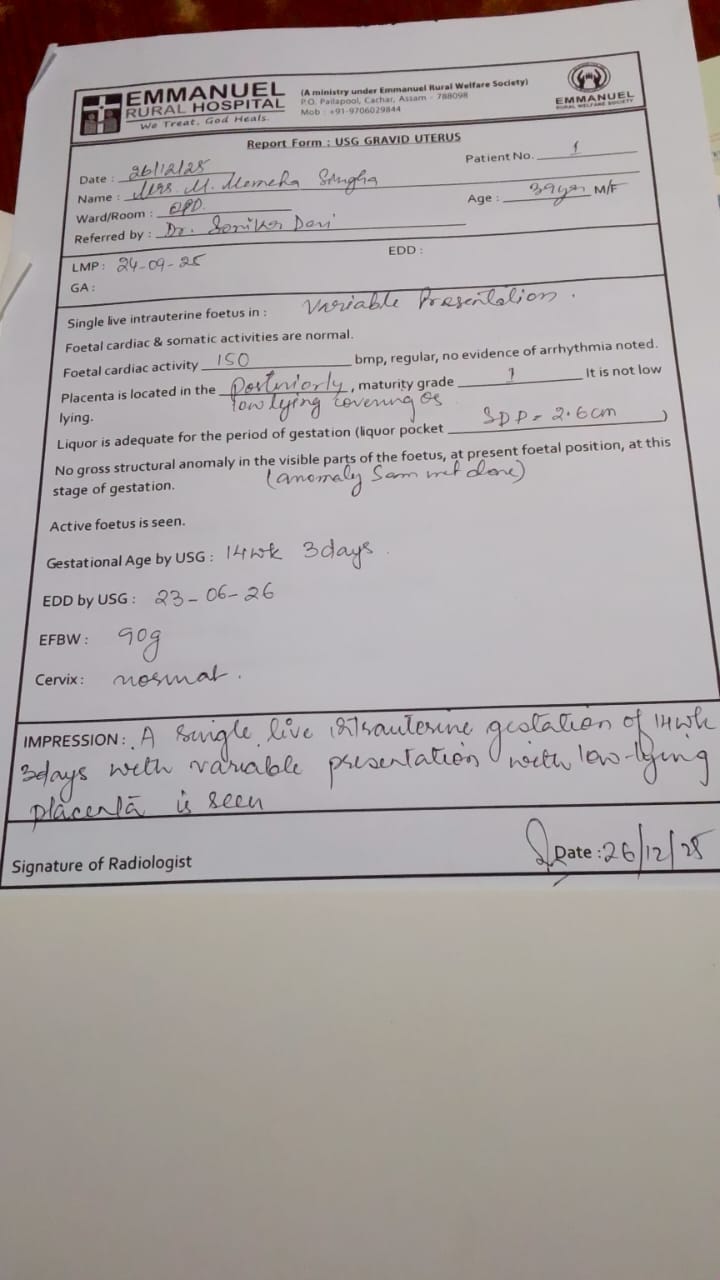 EMMANUEL
RURAL HOSPITAL
We Treat, God Heals.
(A ministry under Emmanuel Rural Welfare Society)
P.O. Pailapool, Cachar, Assam - 788098
Mob : +91-9706029844
EMMANUEL
RURAL WELFARE SOCIETY
Report Form : USG GRAVID UTERUS
Date : 26/12/25 Patient No. 1
Name : Mrs. M. Singha
Ward/Room : OPD. Age : 39 M/F
Referred by : Dr.
LMP : 24-09-25 EDD :
GA :
Single live intrauterine foetus in : Variable Presentation.
Foetal cardiac & somatic activities are normal.
Foetal cardiac activity 150 bmp, regular, no evidence of arrhythmia noted.
Placenta is located in the posteriorly, maturity grade 1 It is not low
lying. low lying covering os
Liquor is adequate for the period of gestation (liquor pocket SDP = 2.6cm )
No gross structural anomaly in the visible parts of the foetus, at present foetal position, at this
stage of gestation. (anomaly done)
Active foetus is seen.
Gestational Age by USG : 14wk 3days.
EDD by USG : 23-06-26
EFBW : 90g
Cervix : normal.
IMPRESSION : A single live intrauterine gestation of 14wk
3days with variable presentation with low-lying
placenta is seen
Signature of Radiologist Date : 26/12/25